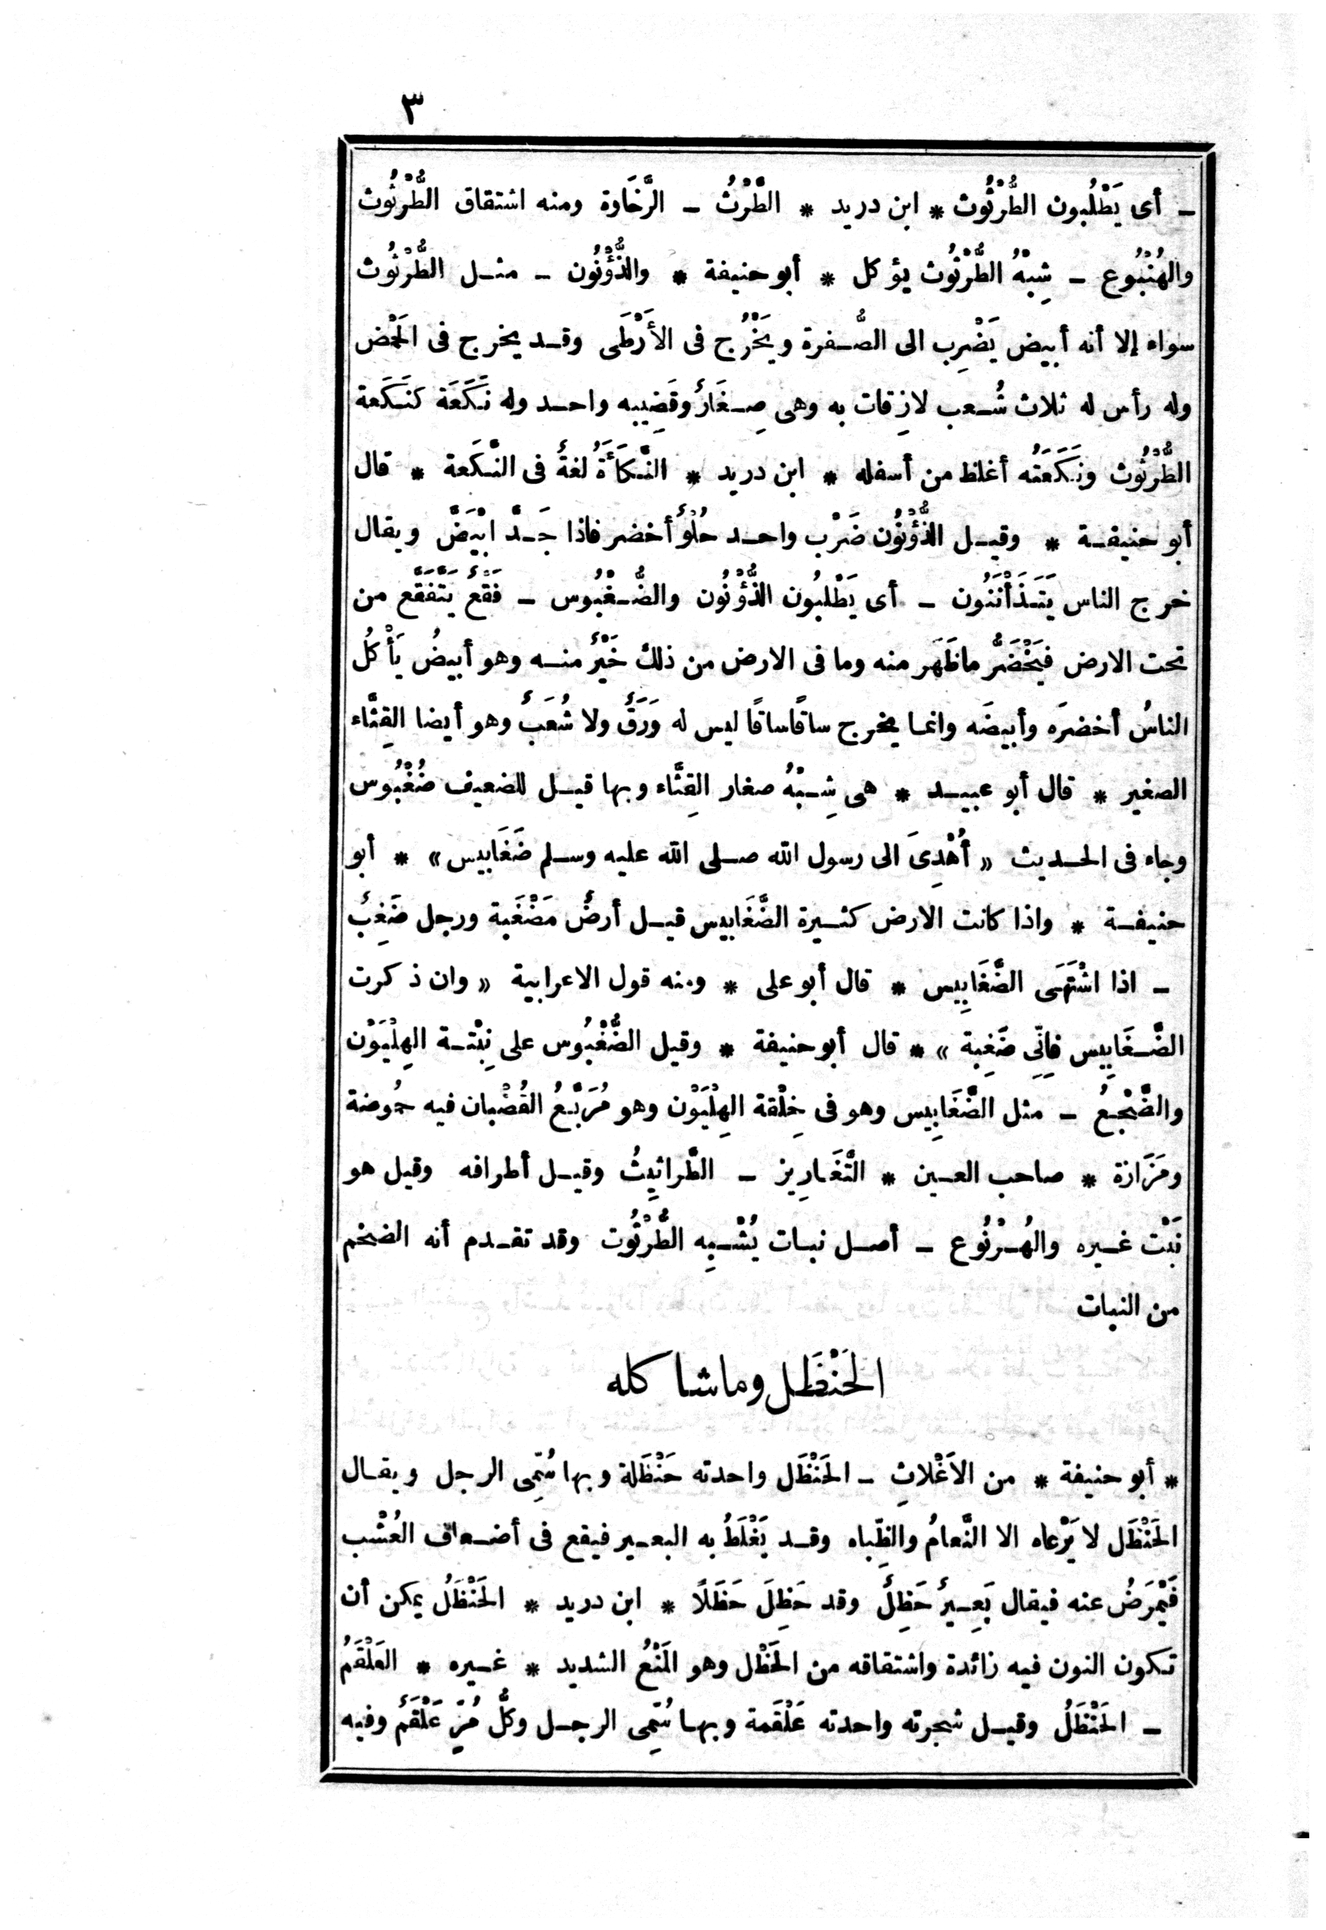 ٣
ـ أى يَطْلُبون الطُّرْثُوث * ابن دريد * الطَّرْثُ ـ الرَّخَاوة ومنه اشتقاق الطُّرْثُوث
والهُنْبُوع ـ شِبْهُ الطُّرْثُوث يؤكل * أبو حنيفة * والذُّؤْنُون ـ مثل الطُّرْثُوث
سواء إلا أنه أبيض يَضْرِب الى الصُّفرة ويَخْرُج فى الأَرْطَى وقد يخرج فى الحَمْض
وله رأس له ثلاث شُعب لازِقات به وهى صِغَارٌ وقَضِيبه واحد وله نَكَعَة كنَكَعة
الطُّرْثُوث ونَكَعَتُه أغلظ من أسفله * ابن دريد * النَّكَأَةُ لغةٌ فى النَّكَعة * قال
أبو حنيفة * وقيل الذُّؤْنُون ضَرْب واحد حُلْوٌ أخضر فاذا جَدَّ ابْيَضَّ ويقال
خرج الناس يَتَذَأْنَنُون ـ أى يَطْلُبون الذُّؤْنُون والضُّغْبُوس ـ فَقْعٌ يَتَفَقَّع من
تحت الارض فيَخْضَرُّ ماظَهَر منه وما فى الارض من ذلك خَيْرٌ منه وهو أبيضُ يَأْكُل
الناسُ أخضرَه وأبيضَه وانما يخرج ساقًا ساقًا ليس له وَرَقٌ ولا شُعَبٌ وهو أيضا القِثَّاء
الصغير * قال أبو عبيد * هى شِبْهُ صغار القِثَّاء وبها قيل للضعيف ضُغْبُوس
وجاء فى الحديث « أُهْدِىَ الى رسول الله صلى الله عليه وسلم ضَغَابيس » * أبو
حنيفة * واذا كانت الارض كثيرة الضَّغَابيس قيل أرضٌ مَضْغَبة ورجل ضَغِبٌ
ـ اذا اشْتَهَى الضَّغَابِيس * قال أبو على * ومنه قول الاعرابية « وان ذكرت
الضَّغَابِيس فانِّى ضَغِبة » * قال أبو حنيفة * وقيل الضُّغْبُوس على نِبْتة الهِلْيَوْن
والضَّجْعُ ـ مثل الضَّغَابِيس وهو فى خِلْقة الهِلْيَوْن وهو مُرَبَّعُ القُضْبان فيه حُموضة
ومَزَازة * صاحب العين * التَّغَاريز ـ الطَّراثِيثُ وقيل أطرافه وقيل هو
نَبْت غيره والهُرْنُوع ـ أصل نبات يُشْبِه الطُّرْثُوث وقد تقدم أنه الضخم
من النبات
الحَنْظَل وما شاكله
* أبو حنيفة * من الأَغْلاثِ ـ الحَنْظَل واحدته حَنْظَلة وبها سُمِّى الرجل ويقال
الحَنْظَل لا يَرْعاه الا النَّعامُ والظِّباء وقد يَغْلَطُ به البعير فيقع فى أضعاف العُشْب
فَيَمْرَضُ عنه فيقال بَعِيرٌ حَظِلٌ وقد حَظِلَ حَظَلًا * ابن دريد * الحَنْظَلُ يمكن أن
تكون النون فيه زائدة واشتقاقه من الحَظْل وهو المَنْعُ الشديد * غيره * العَلْقَمُ
ـ الحَنْظَلُ وقيل شجرته واحدته عَلْقَمة وبها سُمِّى الرجل وكُلُّ مُرٍّ عَلْقَمٌ وفيه